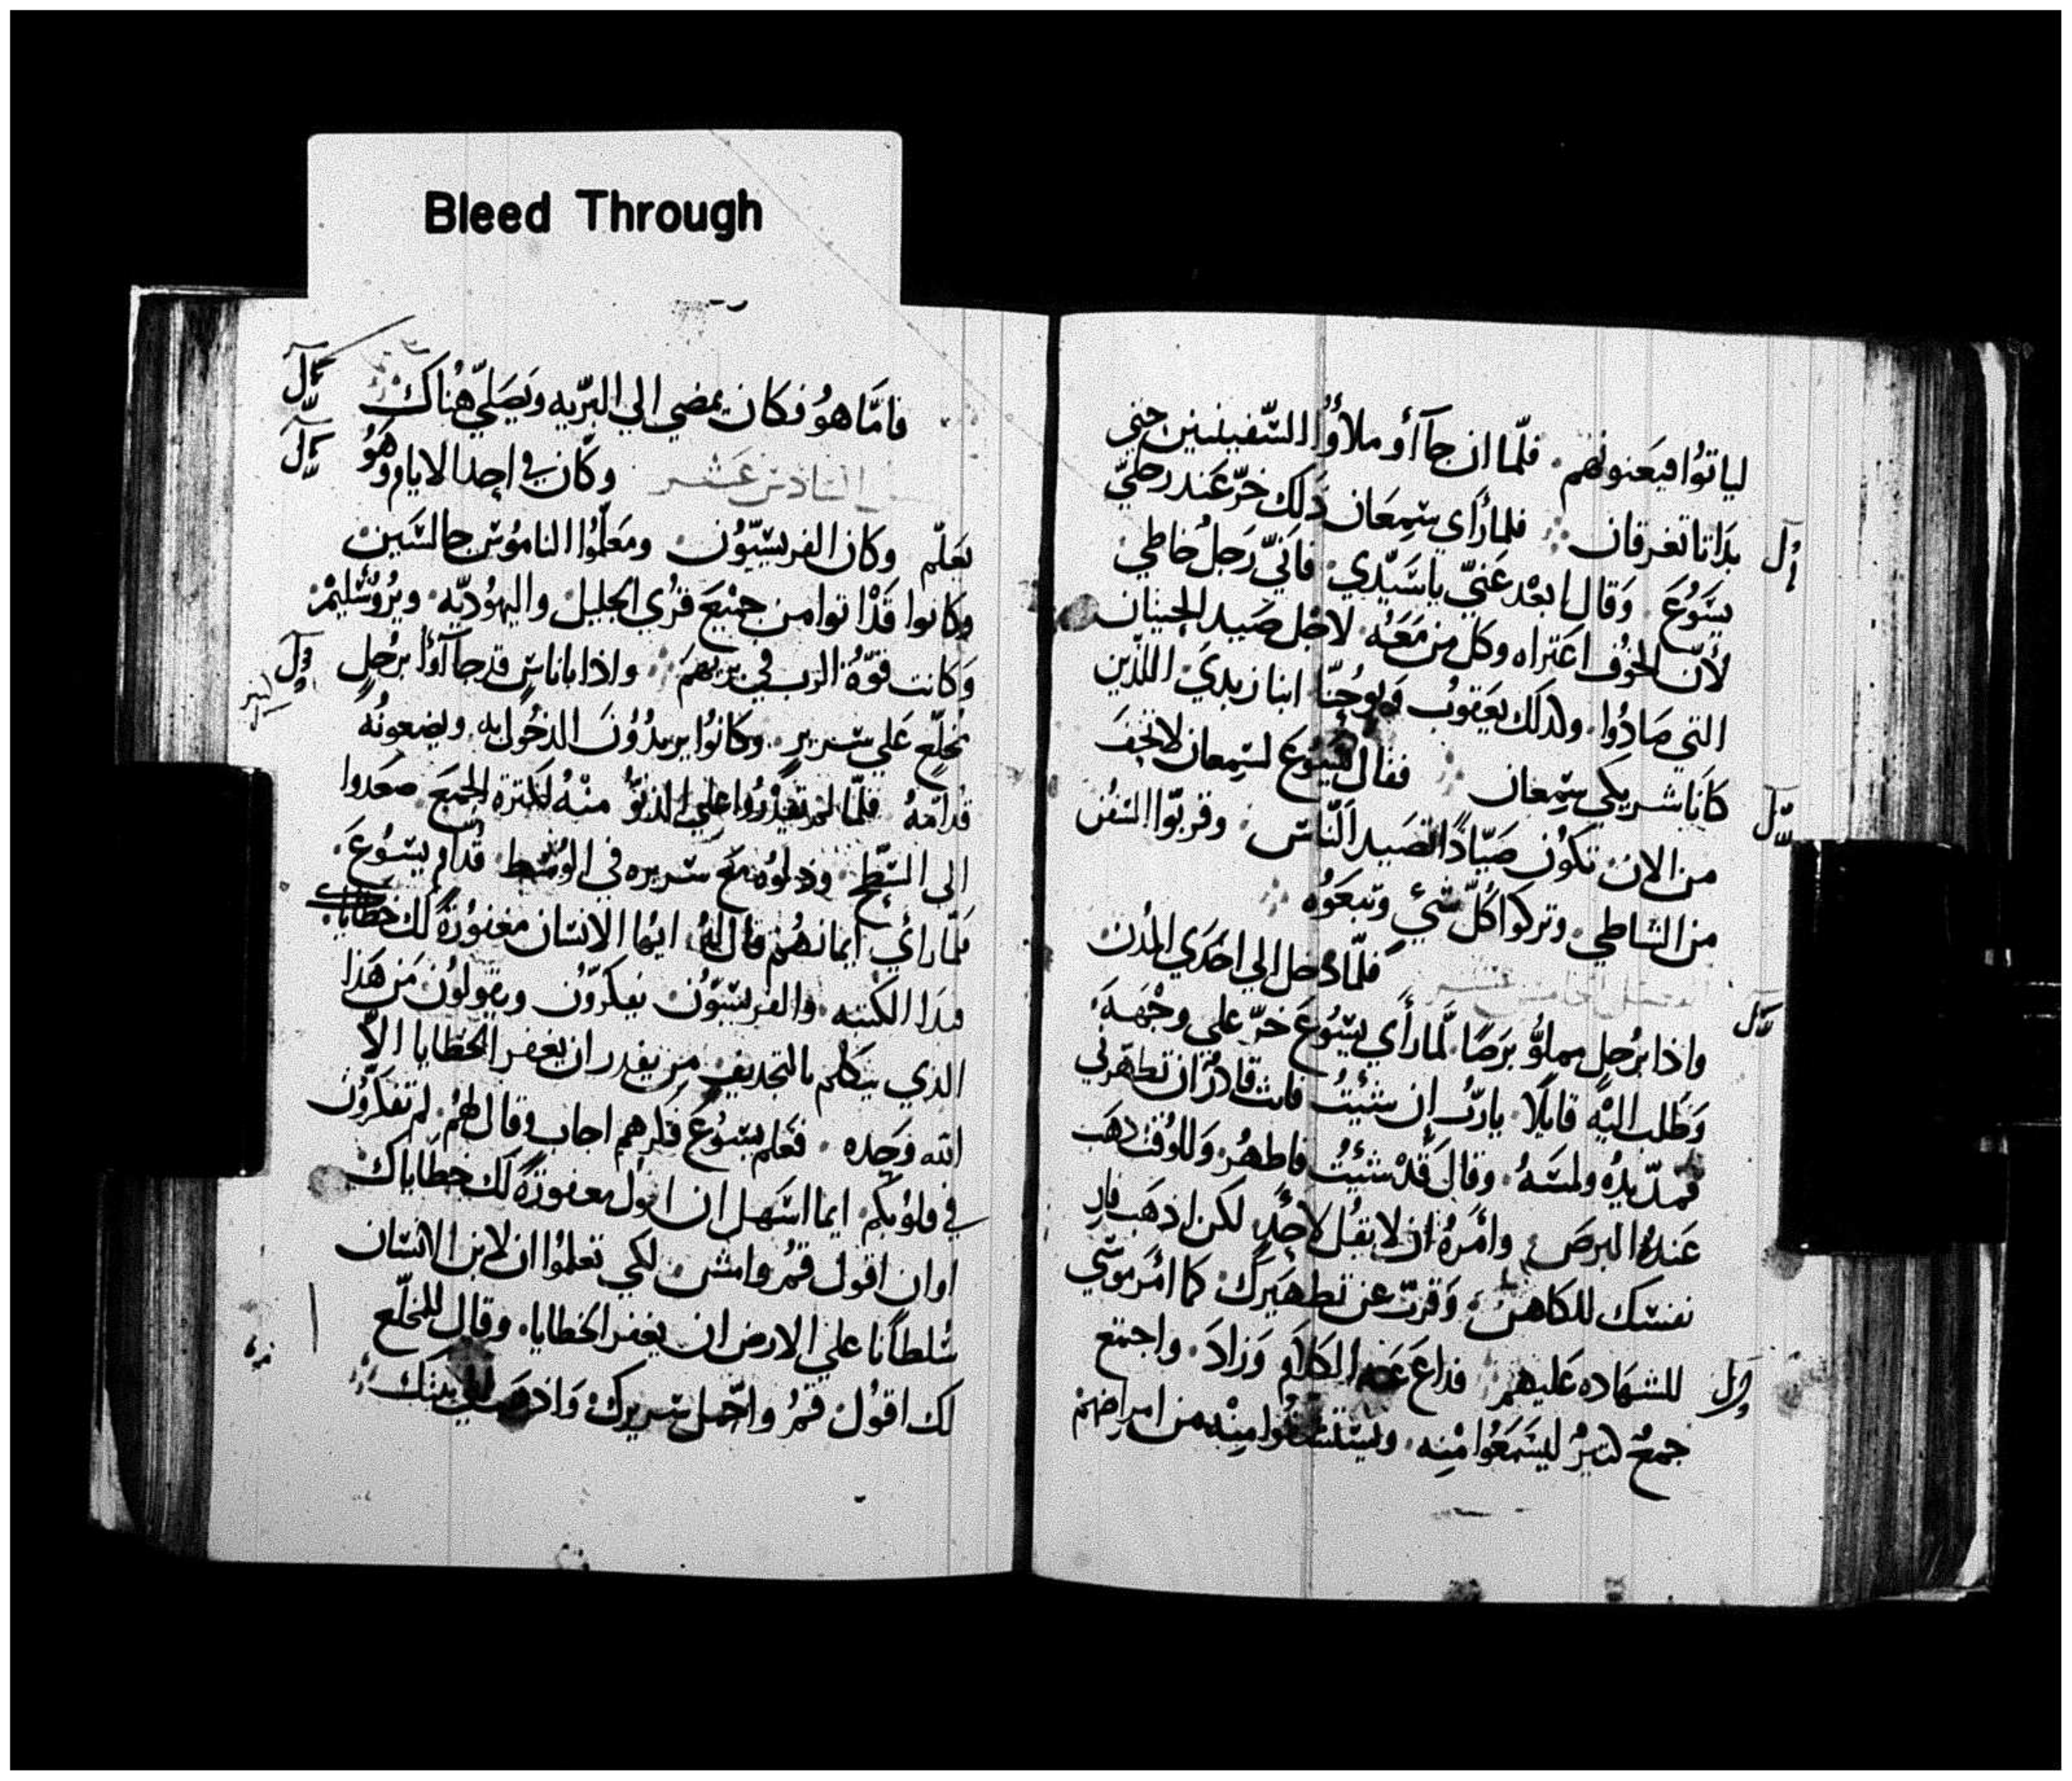 Bleed Through
لياتوُا فيَعنونهم · فلّما ان جآ أو ملأوُا السّفينتين حتي
بدَاتا تغرقان فلما رأي سِمعَان ذَلك خرّ عَند رجليّ
يسَوُعَ · وَقال ابعْد عَنيّ يا سَيّدي · فانَيّ رَجلُ خاطي ·
لأنّ الخوُف اعَتراه وكل من مَعَه · لاجْل صَيد الحيتان
التي صَادُوا · ولذلك يَعقوبُ وَيوُحنّا ابنا زبديَ اللذّين
كانَا شريكي سِمعان فقال يَسَوُعَ لسِمعان لا تخفَ
من الان تكوُن صَيّادًا تصَيد الَنّاس · وقربّوا السَفن
من الشاطي · وتركوا كُلّ شيٍ وتبعَوُه
فلمّا دُخل الي احَدَي المُدن
واذا برُجل مملوُّ برَصًا · لمّا رأَي يسَوُعَ خرّ علي وجْههَ
وَطَلب اليْه قايلًا · يا ربُّ ان شئتُ فانت قادرٌ ان تطهّرني
فمدّ يدُه ولمسَهُ · وقالَ قدْ شئتُ فاطهُر · وَللوُقت ذهَب
عَندُه البرصَ · وأَمَرهُ أن لا يقُل لاحَدٍ · لكن اذهَب فارِ
نفسَك للكاهن · وَقربّ عن تطهيَركَ · كما أَمَر موُسَي
للشهَاده عَليهم فذاعَ عَنه الكلاَم وَزادَ · واجتمع
جمعٌ كثيرُ ليسَمَعُوا مْنِه · ويسَتشفُوا مِنْه من امراضهمْ
فامّا هوُ فكان يمضي الي البّريه وَيصَليّ هنُاكَ
السَادسَ عَشر وكاَن في احِدا الايام وهَوُ
يَعَلّم وكان الفريسّيوُن · ومعَلّموُا الناموُس جالسَين
وكانوا قدْ اتوا من جمْيعَ قرُي الجليل · واليهوُديّه · ويرُوُشَليمْ
وَكانت قوّةُ الرب في بريهمَ واذا باناسٍ قد جآ أوأ برُجلٍ
مُخلّعٍ عَلي سَريرٍ · وكانوُا يريدوُنَ الدخُول به · وليضعوُنهُ
قدامَهُ فلمّا لم يقدرُوا علي الدنوُّ منْهُ لكثرة الجمَعَ صعَدوا
الى السَطّح · ودلوُه مَع سَريره في الوُسَط · قُدام يسَوُعَ ·
فلمّا رأيَ ايمانهُم قال لهُ · ايهُا الانسَان مغفوُرةٌ لك خطاياك ·
فبدَا الكتبه · والفريسَيوُن يفكروّن ويقولوُن مَن هَذا
الذي يتكلم بالتجديف من يقدر ان يغفر الخطايا الاّ
الله وَحِده · فعَلم يسَوُعَ فكرهم اجاب وقال لهمُ · لم تفكروّن
في قلوُبكم · ايما اسَهل ان اقول مغفورةٌ لك خطاياك
او ان اقول قمُ وامشِ · لكي تعلموُا ان لابن الانسَان
سُلطانًا علي الارض ان يغفر الخطايا · وقال للمخلّع
لك اقوُل قمُ واحِمل سَريركَ وَاذهَب الي بيتك